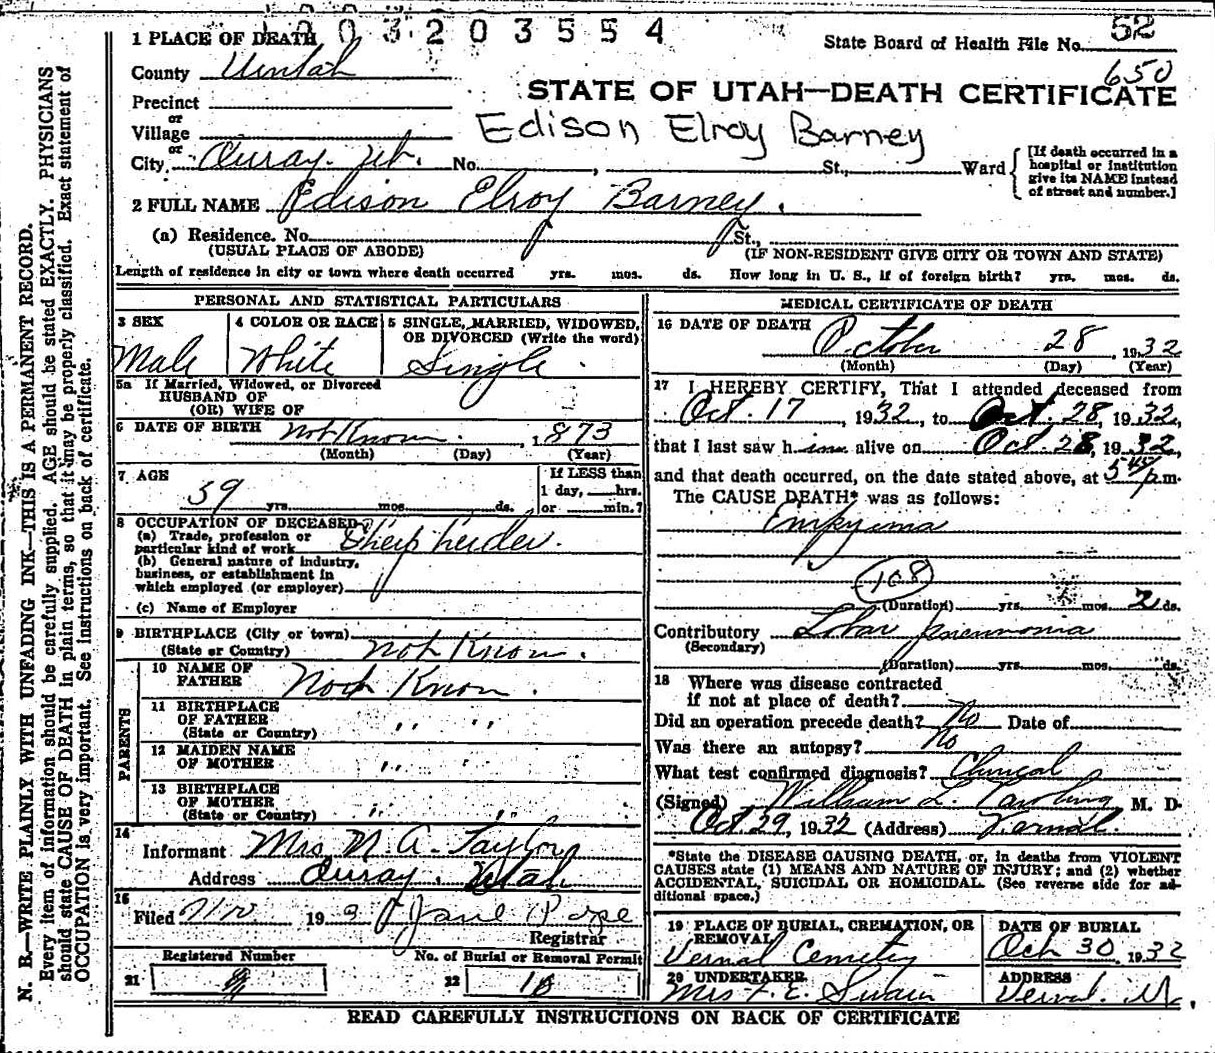 003203554
State Board of Health File No. 52
650
1 PLACE OF DEATH
County Uintah
STATE OF UTAH—DEATH CERTIFICATE
Precinct
or
Village
Edison Elroy Barney
or
City Ouray. Ut. No. , St., Ward
[If death occurred in a hospital or institution give its NAME instead of street and number.]
2 FULL NAME Edison Elroy Barney.
(a) Residence. No. St.,
(USUAL PLACE OF ABODE) (IF NON-RESIDENT GIVE CITY OR TOWN AND STATE)
Length of residence in city or town where death occurred yrs. mos. ds. How long in U. S., if of foreign birth? yrs. mos. ds.
PERSONAL AND STATISTICAL PARTICULARS
3 SEX
Male
4 COLOR OR RACE
White
5 SINGLE, MARRIED, WIDOWED,
OR DIVORCED (Write the word)
Single
5a If Married, Widowed, or Divorced
HUSBAND OF
(OR) WIFE OF
6 DATE OF BIRTH Not Know. , 1873
(Month) (Day) (Year)
7 AGE
59 yrs. mos. ds.
If LESS than
1 day, hrs.
or min.?
8 OCCUPATION OF DECEASED
(a) Trade, profession or
particular kind of work Sheep herder.
(b) General nature of industry,
business, or establishment in
which employed (or employer)
(c) Name of Employer
9 BIRTHPLACE (City or town)
(State or Country) Not Know.
PARENTS
10 NAME OF
FATHER Not Know.
11 BIRTHPLACE
OF FATHER
(State or Country) " "
12 MAIDEN NAME
OF MOTHER " "
13 BIRTHPLACE
OF MOTHER
(State or Country) " "
14
Informant Mrs M. A. Taylor
Address Ouray, Utah
15
Filed 193
Registrar
Registered Number
21
No. of Burial or Removal Permit
22
MEDICAL CERTIFICATE OF DEATH
16 DATE OF DEATH
October 28, 1932
(Month) (Day) (Year)
17 I HEREBY CERTIFY, That I attended deceased from
Oct. 17, 1932, to Oct. 28, 1932,
that I last saw him alive on Oct. 28, 1932,
and that death occurred, on the date stated above, at 5 45 p.m.
The CAUSE DEATH* was as follows:
Empyema
108
(Duration) yrs. mos. 2 ds.
Contributory Lobar pneumonia
(Secondary)
(Duration) yrs. mos. ds.
18 Where was disease contracted
if not at place of death?
Did an operation precede death? No Date of
Was there an autopsy? No
What test confirmed diagnosis? Clinical
(Signed) William L. M. D.
Oct 29, 1932 (Address) Vernal.
*State the DISEASE CAUSING DEATH, or, in deaths from VIOLENT
CAUSES state (1) MEANS AND NATURE OF INJURY; and (2) whether
ACCIDENTAL, SUICIDAL OR HOMICIDAL. (See reverse side for ad-
ditional space.)
19 PLACE OF BURIAL, CREMATION, OR
REMOVAL
Vernal Cemetery
DATE OF BURIAL
Oct 30, 1932
20 UNDERTAKER
Mrs F. E. Swain
ADDRESS
Vernal. Ut.
READ CAREFULLY INSTRUCTIONS ON BACK OF CERTIFICATE
N. B.—WRITE PLAINLY WITH UNFADING INK—THIS IS A PERMANENT RECORD.
Every item of information should be carefully supplied. AGE should be stated EXACTLY. PHYSICIANS
should state CAUSE OF DEATH in plain terms, so that it may be properly classified. Exact statement of
OCCUPATION is very important. See instructions on back of certificate.